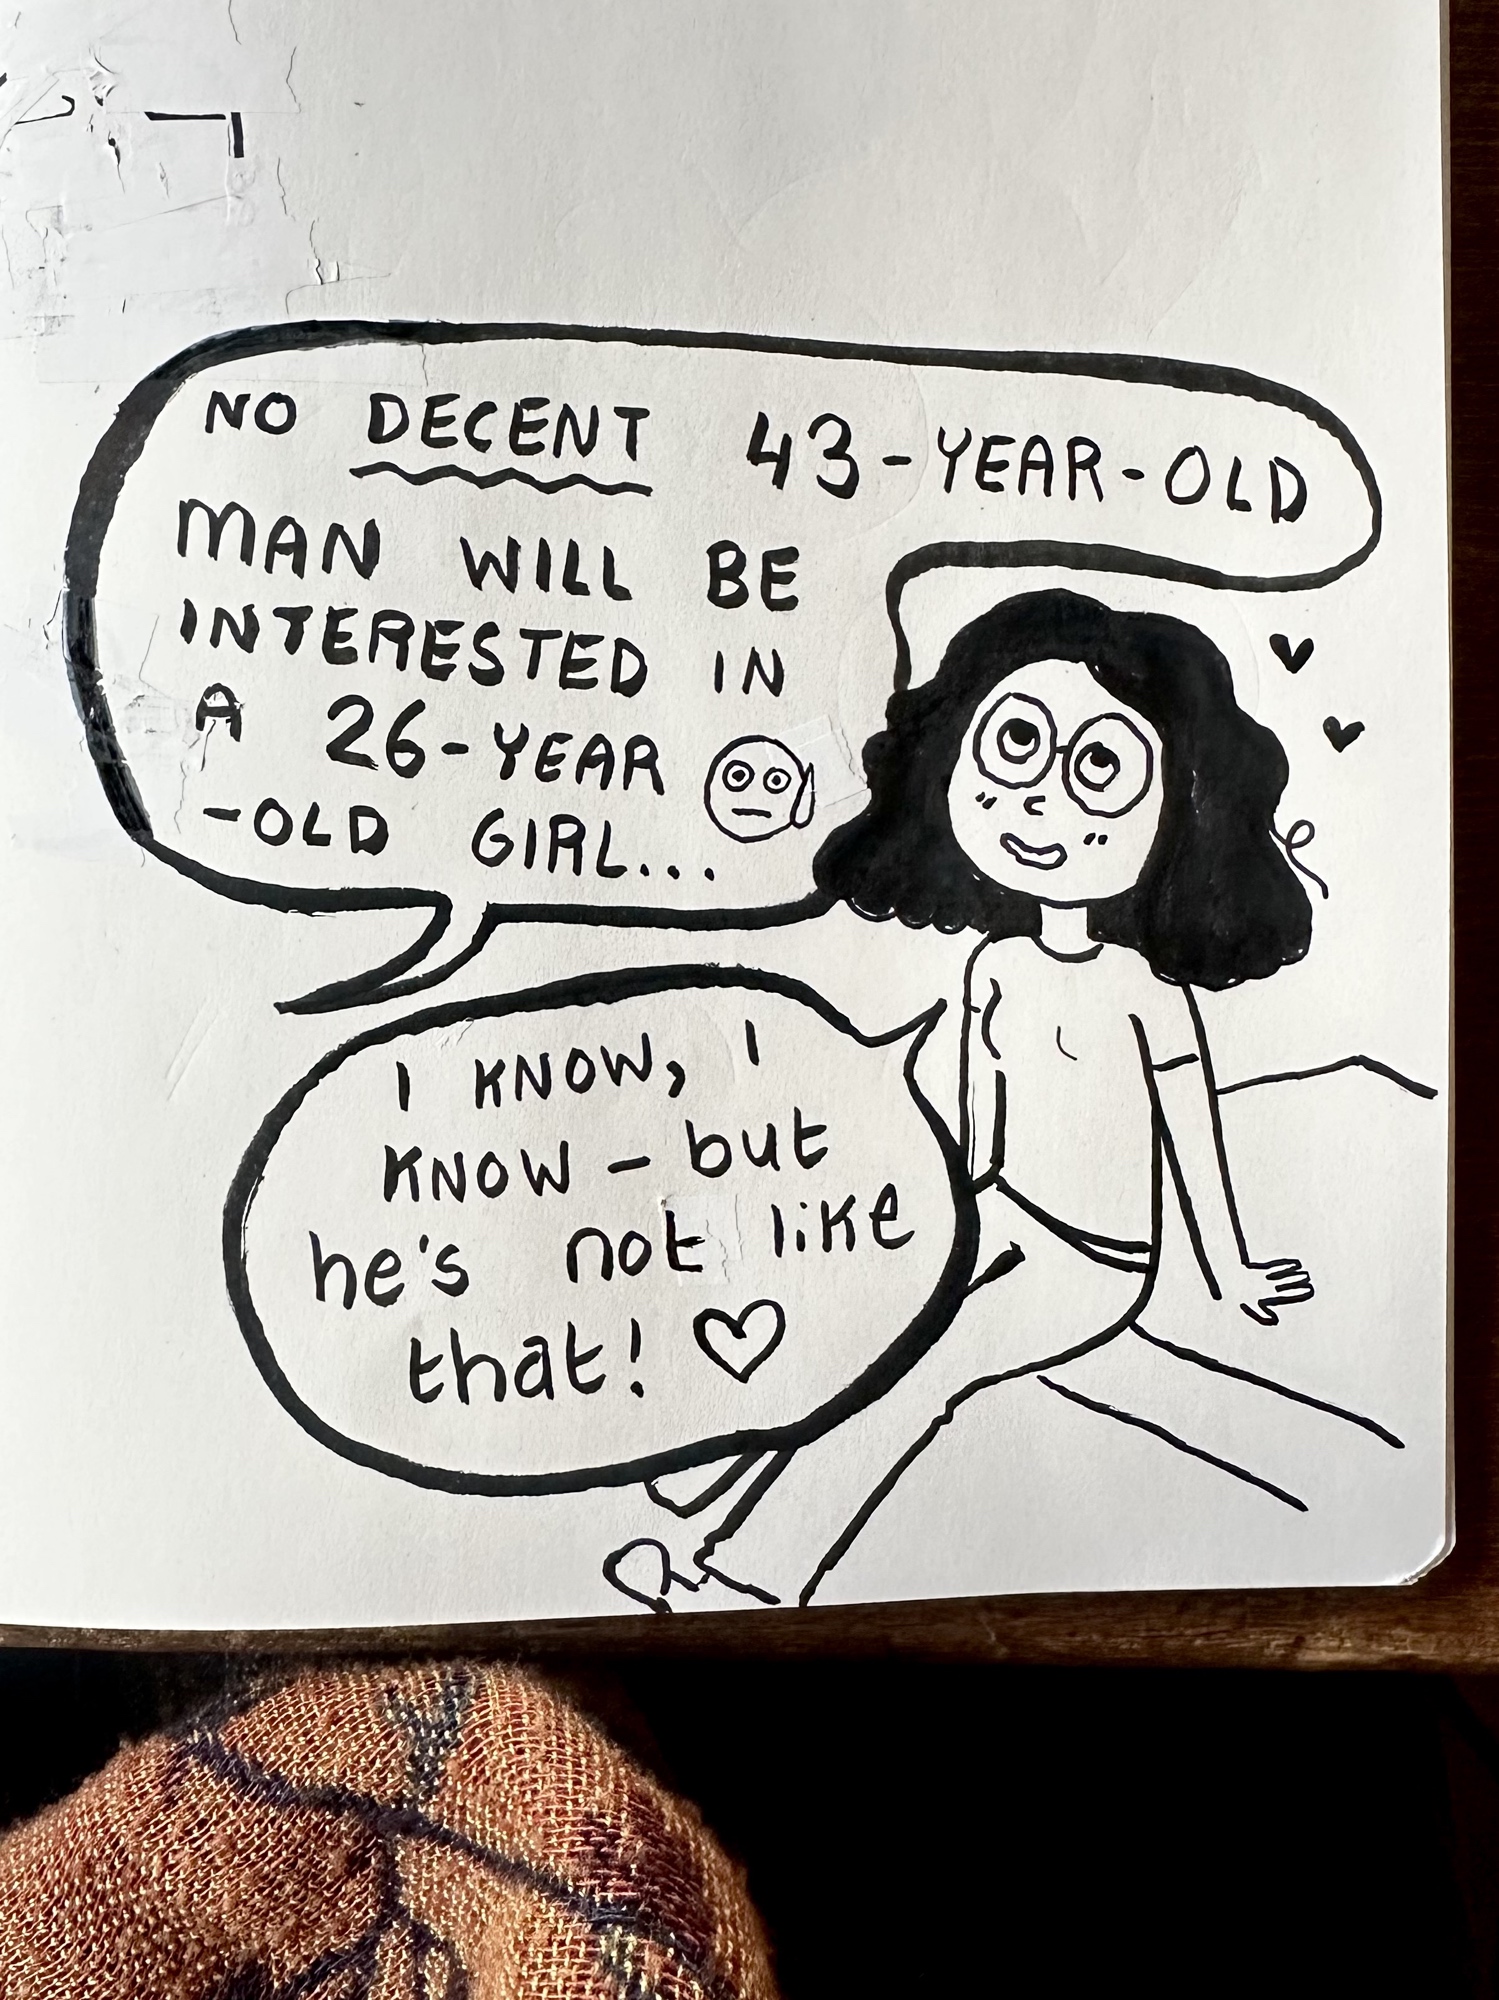 NO DECENT 43-YEAR-OLD
MAN WILL BE
INTERESTED IN
A 26-YEAR
-OLD GIRL...
I KNOW, I
KNOW - but
he's not like
that! ♡